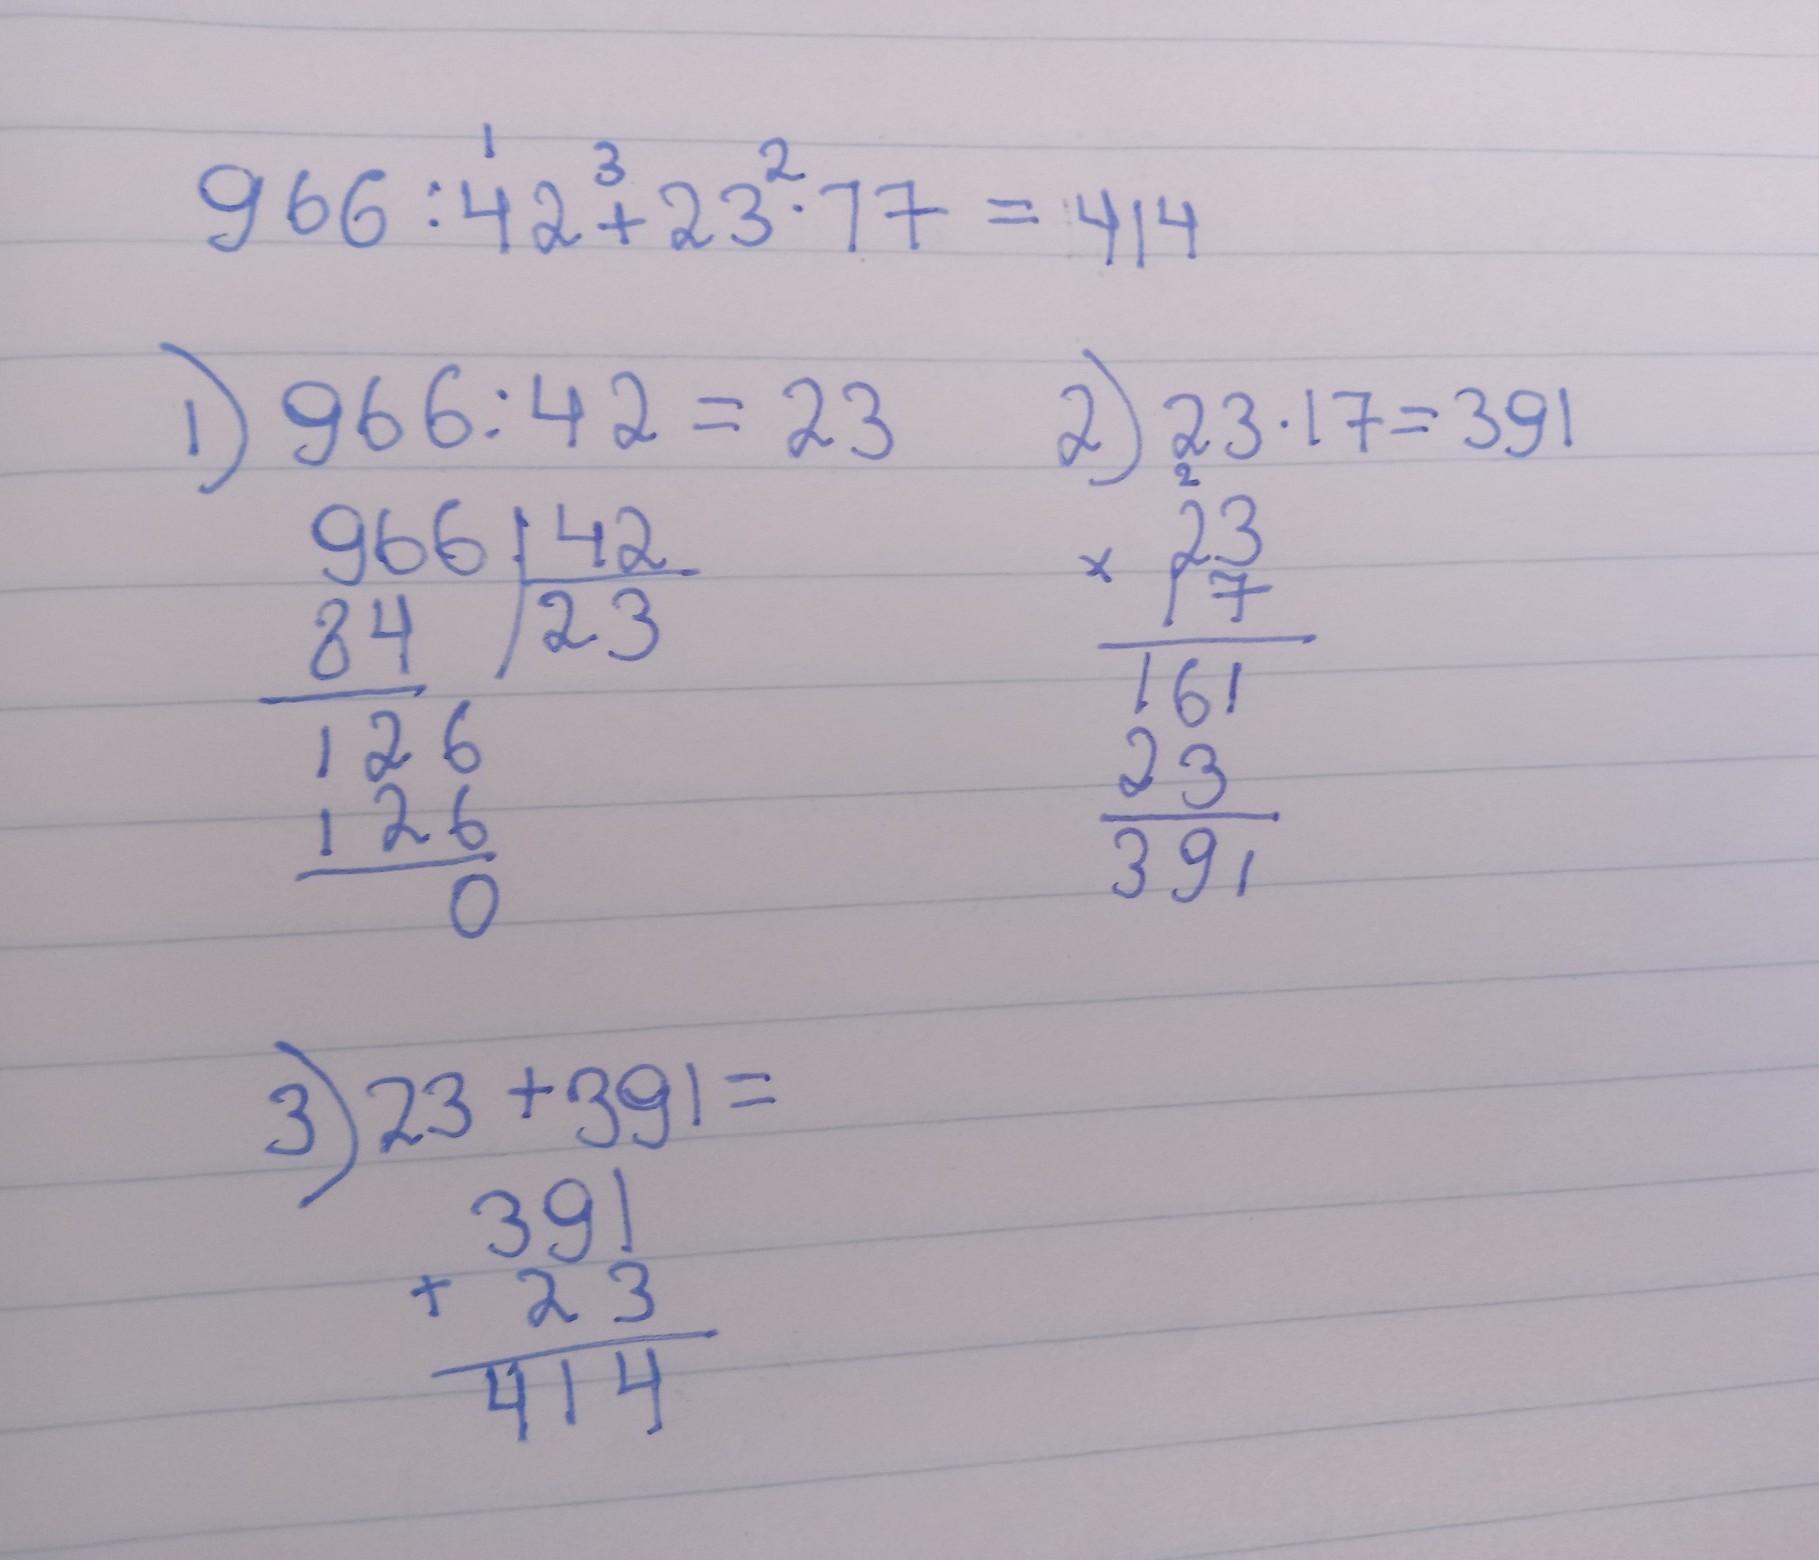 1 3 2
966:42+23·17=414
1) 966:42=23
966 42
84 23
126
126
0
2) 23·17=391
2
23
× 17
161
23
391
3) 23+391=
391
+ 23
414